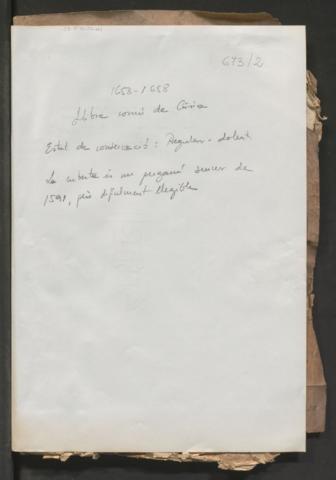 673/2
1658-1658
Llibre comú de Cúria
Estat de conservació: Regular - dolent
La coberta és un pergamí sencer de
1591, però difícilment llegible